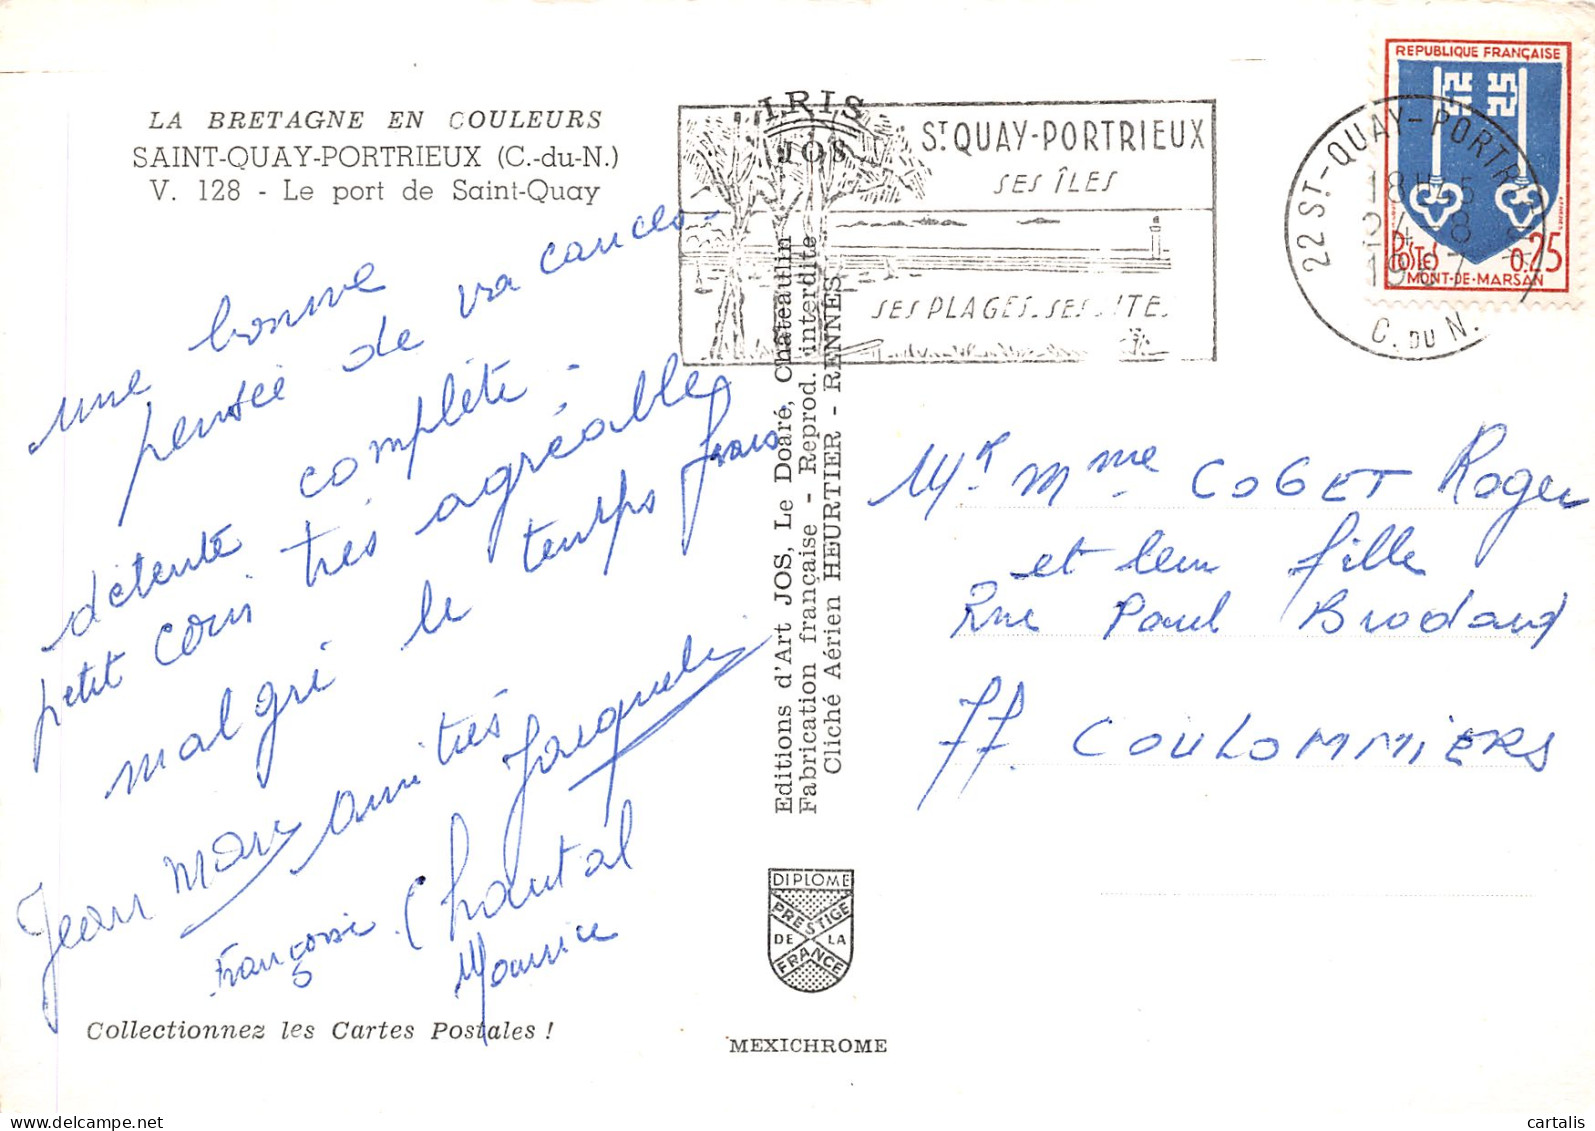 LA BRETAGNE EN COULEURS
SAINT-QUAY-PORTRIEUX (C.-du-N.)
V. 128 - Le port de Saint-Quay
une bonne
pensée de vacances -
détente complète ;
petit coin très agréable
malgré le temps frais.
amitiés
Jean Marc
Jacqueline
Françoise Chantal
Maurice
Collectionnez les Cartes Postales !
IRIS
JOS
Editions d'Art JOS, Le Doaré, Chateaulin
Fabrication française - Reprod. interdite
Cliché Aérien HEURTIER - RENNES
DIPLOME
PRESTIGE
DE LA
FRANCE
MEXICHROME
ST QUAY-PORTRIEUX
SES ÎLES
SES PLAGES. SES SITES
22 ST-QUAY-PORTRIEUX
18H45
24-8
1967
C. DU N.
REPUBLIQUE FRANÇAISE
POSTES 0,25
MONT-DE-MARSAN
Mr. Mme. COGET Roger
et leur fille
Rue Paul Brodard
77. COULOMMIERS
cartalis
delcampe.net